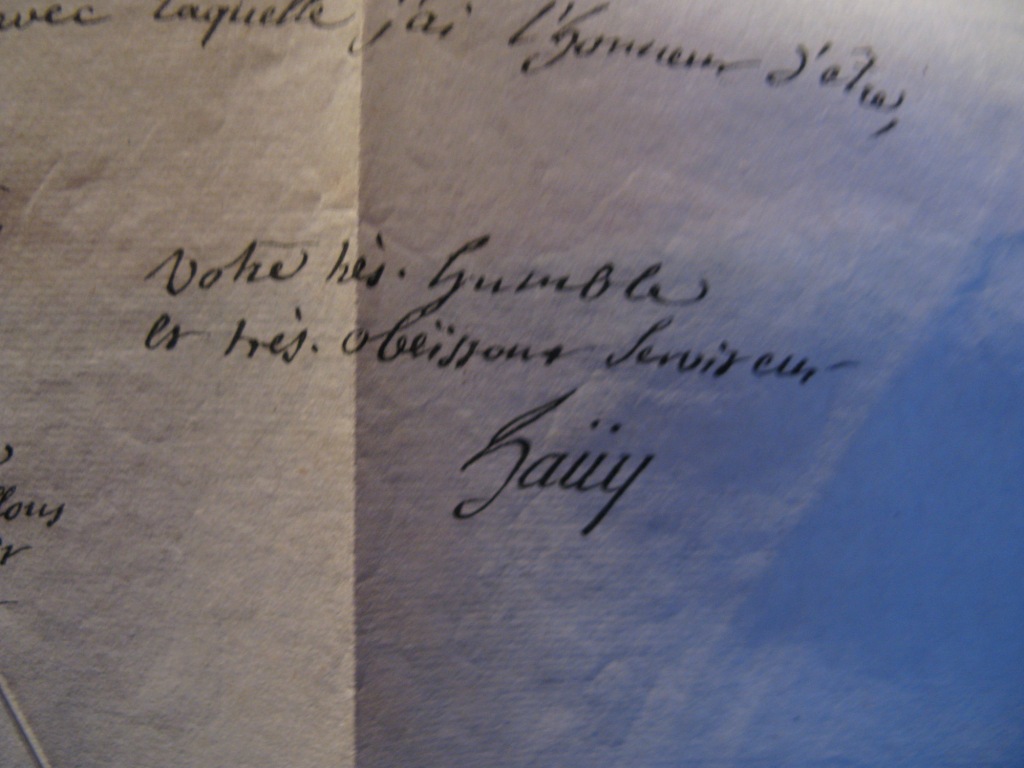 avec laquelle j'ai l'honneur d'être,
Votre très. humble
et très. obéïssant Serviteur
haüy